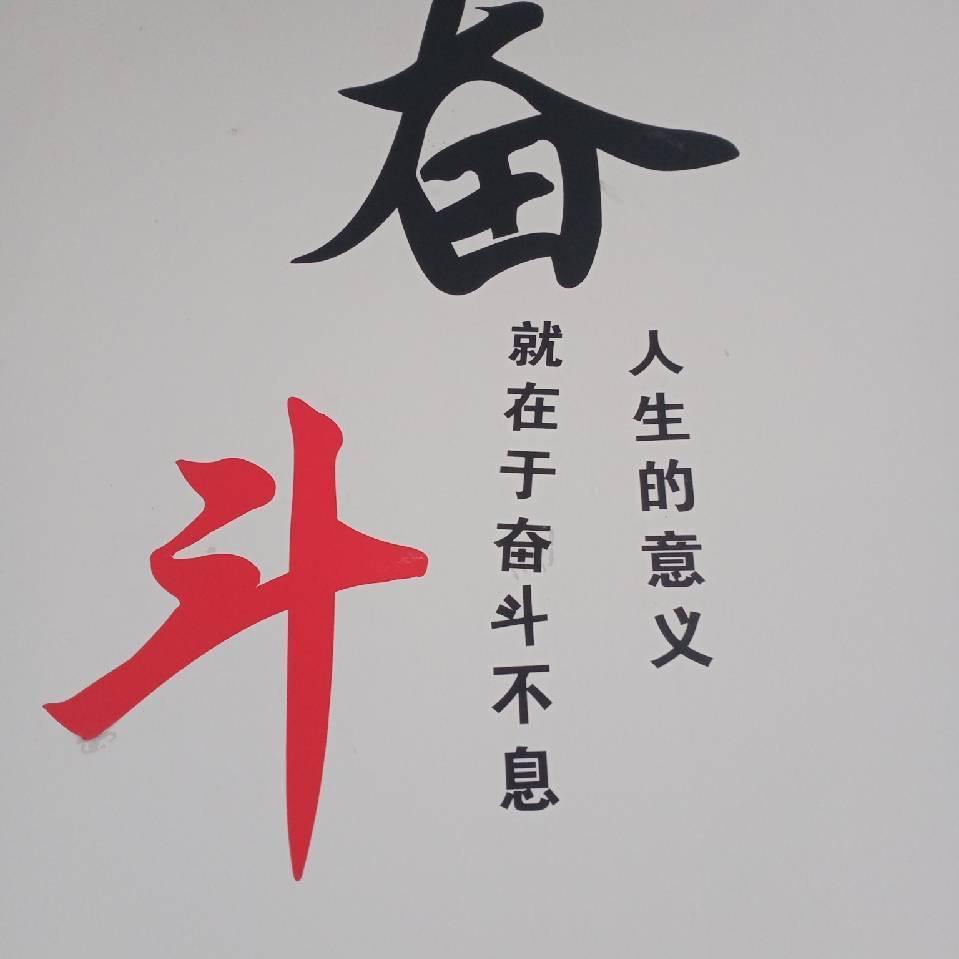 奋
斗
人生的意义
就在于奋斗不息